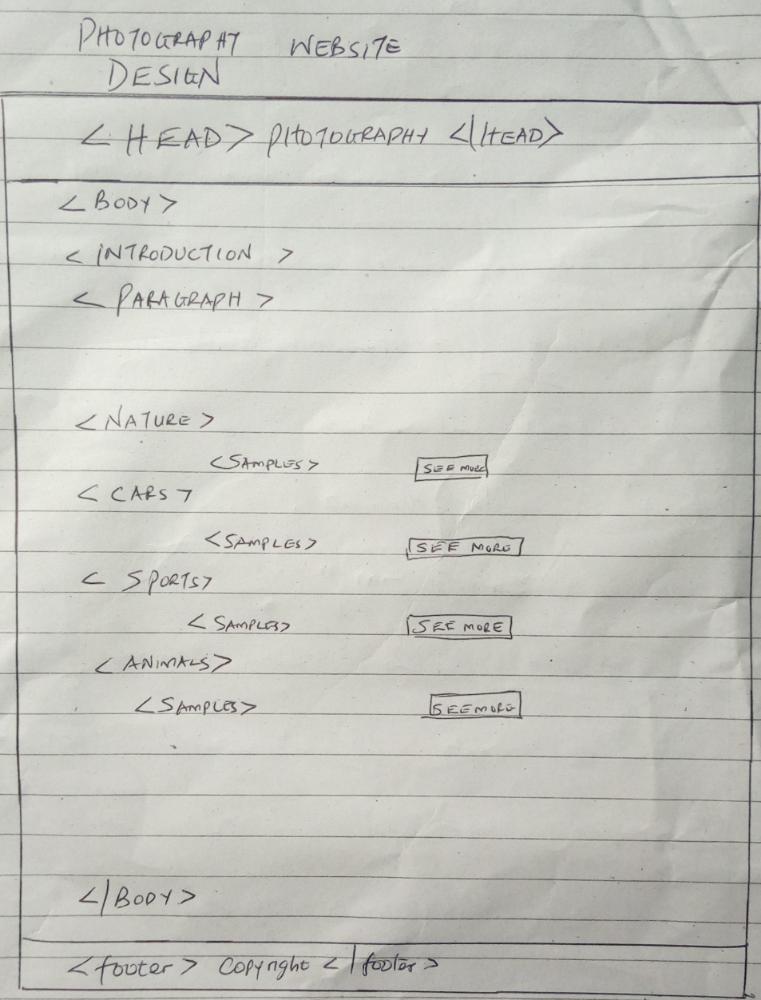 PHOTOGRAPHY WEBSITE
DESIGN
<HEAD> PHOTOGRAPHY </HEAD>
<BODY>
<INTRODUCTION >
<PARAGRAPH >
<NATURE>
<SAMPLES> SEE MORE
<CARS>
<SAMPLES> SEE MORE
< SPORTS>
<SAMPLES> SEE MORE
<ANIMALS>
<SAMPLES> SEE MORE
</BODY>
<footer> Copyright </footer>